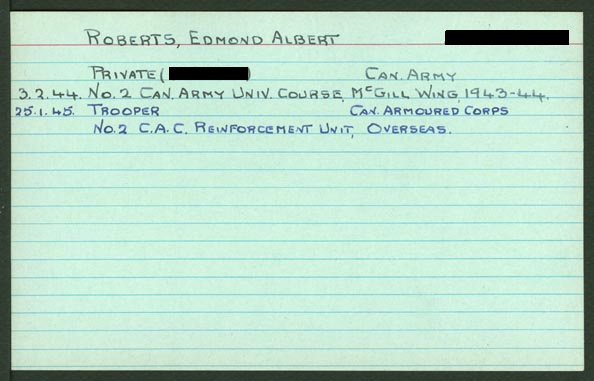 ROBERTS, EDMOND ALBERT
PRIVATE ( ) CAN. ARMY
3.2.44. NO. 2 CAN. ARMY UNIV. COURSE, MCGILL WING, 1943-44.
25.1.45. TROOPER CAN. ARMOURED CORPS
NO. 2 C.A.C. REINFORCEMENT UNIT, OVERSEAS.